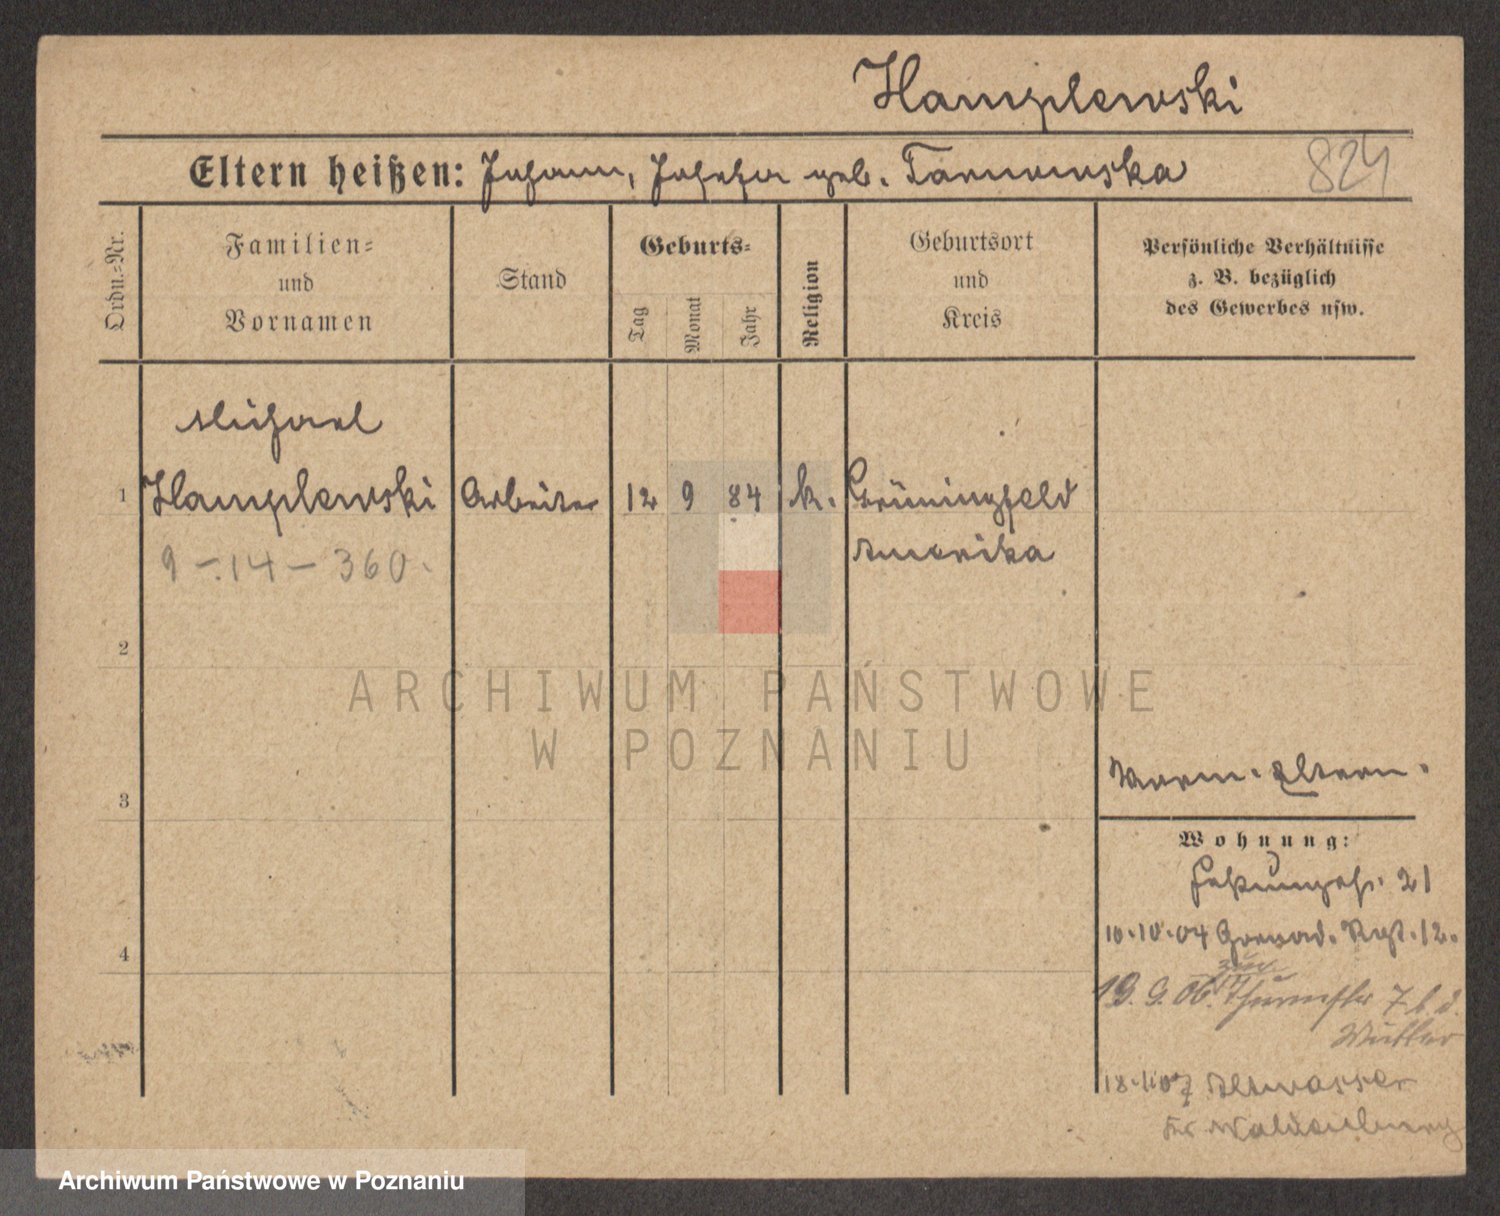 Hamplewski
Eltern heißen: Johann, Josefa geb. Tarnowska
824
Ordn.-Nr.
Familien-
und
Vornamen
Stand
Geburts-
Tag
Monat
Jahr
Religion
Geburtsort
und
Kreis
Persönliche Verhältnisse
z. B. bezüglich
des Gewerbes usw.
Michael
1 Hamplewski Arbeiter 12 9 84 k. Grüningfeld
Amerika
9 - 14 - 360.
2
3
4
Eltern.
Wohnung:
21
10.10.04 Grenad. Rgt. 12.
zur
19.9.06. Thurmstr 7 b. d.
Mutter
18.11.07 Altwasser
Kr. Waldenburg
ARCHIWUM PAŃSTWOWE
W POZNANIU
Archiwum Państwowe w Poznaniu